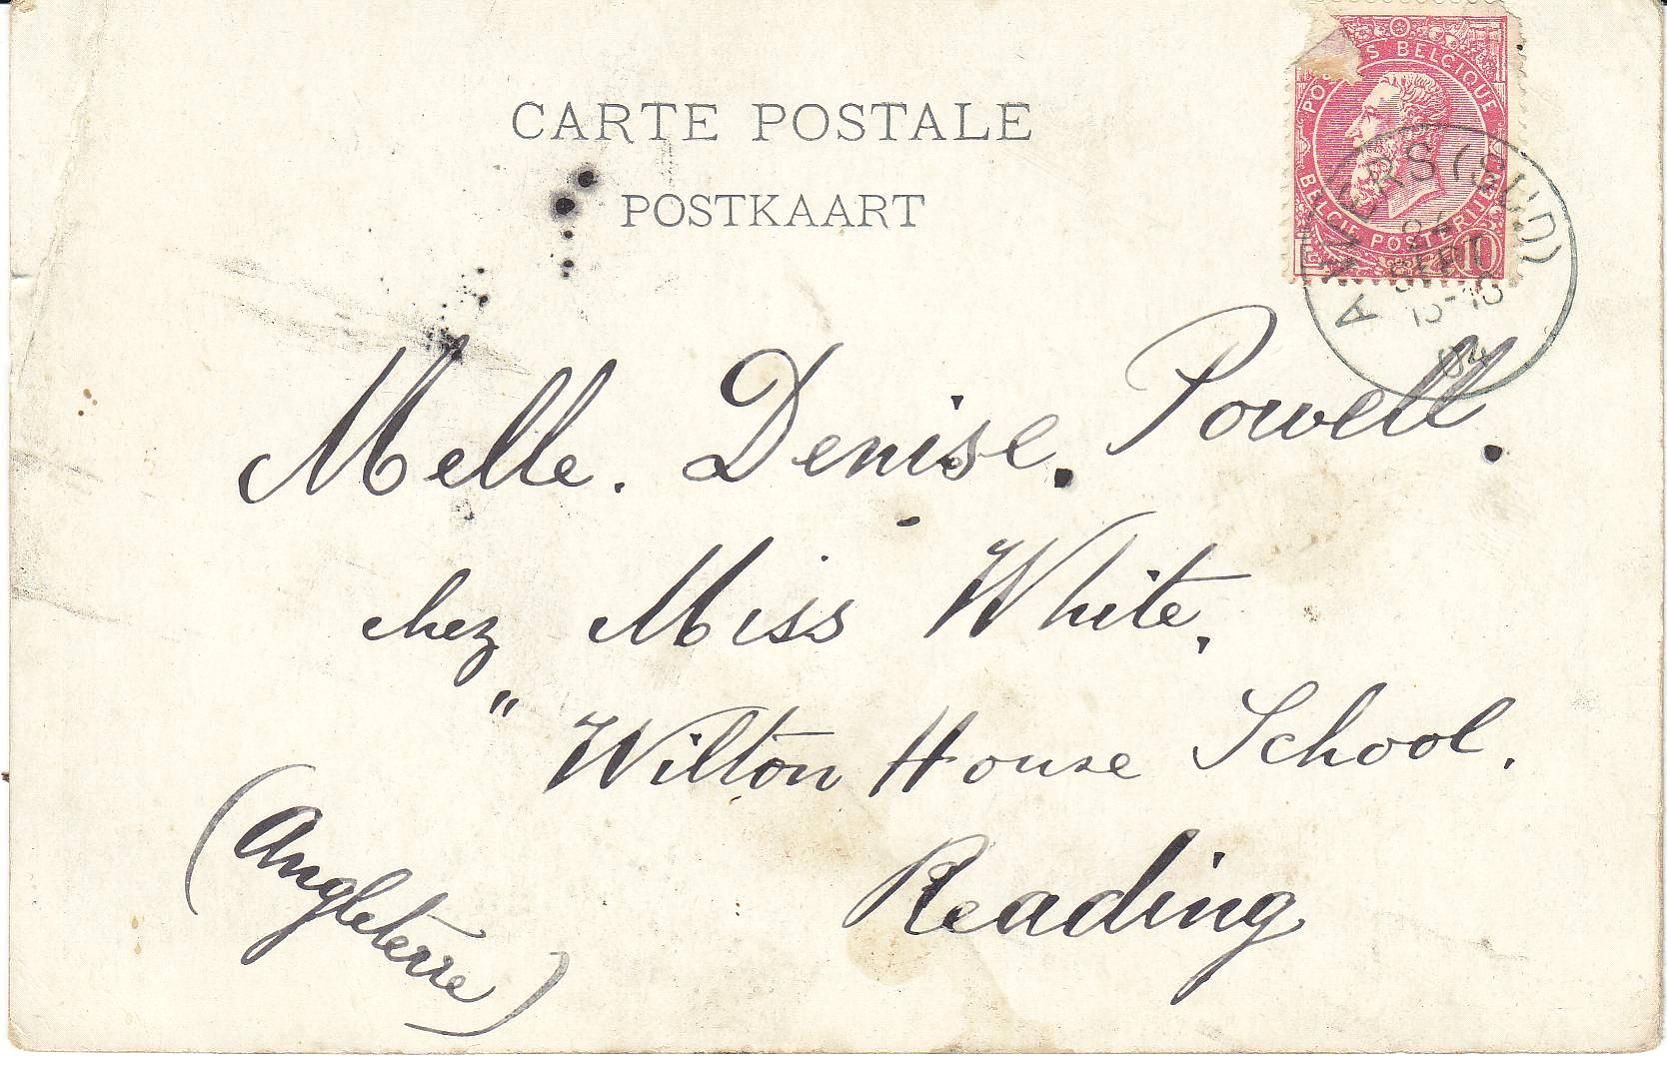 CARTE POSTALE
POSTKAART
POSTES BELGIQUE
BELGIE POSTERIJEN
10
ANVERS (SUD)
24
SEPT
04
Melle. Denise. Powell.
chez Miss White,
" Wilton House School.
Reading
(Angleterre)